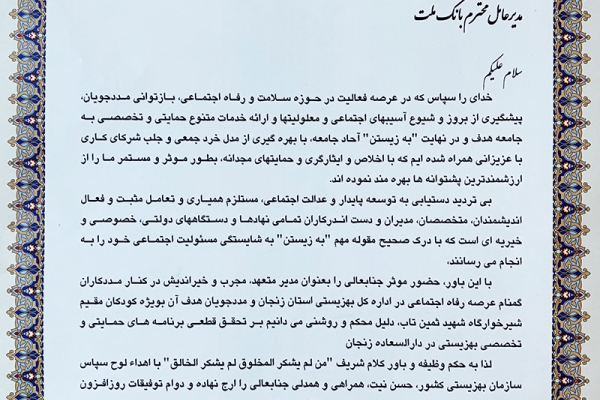 مدیرعامل محترم بانک ملت
سلام علیکم
خدای را سپاس که در عرصه فعالیت در حوزه سلامت و رفاه اجتماعی، بازتوانی مددجویان،
پیشگیری از بروز و شیوع آسیبهای اجتماعی و معلولیتها و ارائه خدمات متنوع حمایتی و تخصصی به
جامعه هدف و در نهایت "به زیستن" آحاد جامعه، با بهره گیری از مدل خرد جمعی و جلب شرکای کاری
با عزیزانی همراه شده ایم که با اخلاص و ایثارگری و حمایتهای مجدانه، بطور موثر و مستمر ما را از
ارزشمندترین پشتوانه ها بهره مند نموده اند.
بی تردید دستیابی به توسعه پایدار و عدالت اجتماعی، مستلزم همیاری و تعامل مثبت و فعال
اندیشمندان، متخصصان، مدیران و دست اندرکاران تمامی نهادها و دستگاههای دولتی، خصوصی و
خیریه ای است که با درک صحیح مقوله مهم "به زیستن" به شایستگی مسئولیت اجتماعی خود را به
انجام می رسانند،
با این باور، حضور موثر جنابعالی را بعنوان مدیر متعهد، مجرب و خیراندیش در کنار مددکاران
گمنام عرصه رفاه اجتماعی در اداره کل بهزیستی استان زنجان و مددجویان هدف آن بویژه کودکان مقیم
شیرخوارگاه شهید ثمین تاب، دلیل محکم و روشنی می دانیم بر تحقق قطعی برنامه های حمایتی و
تخصصی بهزیستی در دارالسعاده زنجان
لذا به حکم وظیفه و باور کلام شریف "من لم یشکر المخلوق لم یشکر الخالق" با اهداء لوح سپاس
سازمان بهزیستی کشور، حسن نیت، همراهی و همدلی جنابعالی را ارج نهاده و دوام توفیقات روزافزون